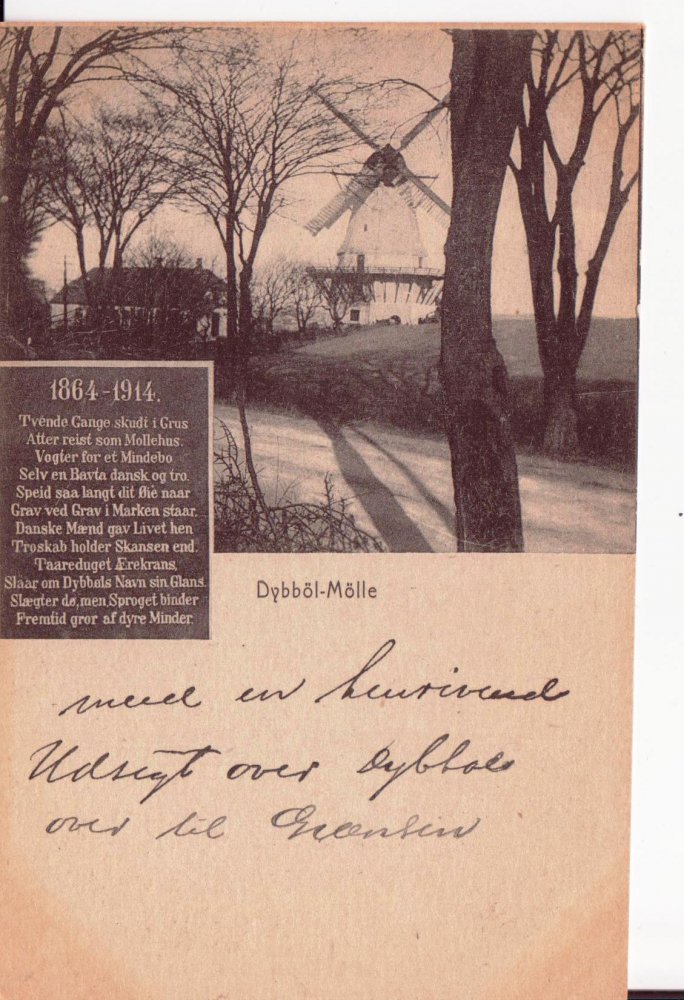 1864-1914.
Tvende Gange skudt i Grus
Atter reist som Mollehus.
Vogter for et Mindebo
Selv en Bavta dansk og tro.
Speid saa langt dit Øie naar
Grav ved Grav i Marken staar.
Danske Mænd gav Livet hen
Troskab holder Skansen end.
Taareduget Ærekrans,
Slaar om Dybbøls Navn sin Glans.
Slægter dø, men Sproget binder
Fremtid gror af dyre Minder.
Dybböl-Mölle
med en henrivend
Udsigt over Dybbøls
over til Grænsen